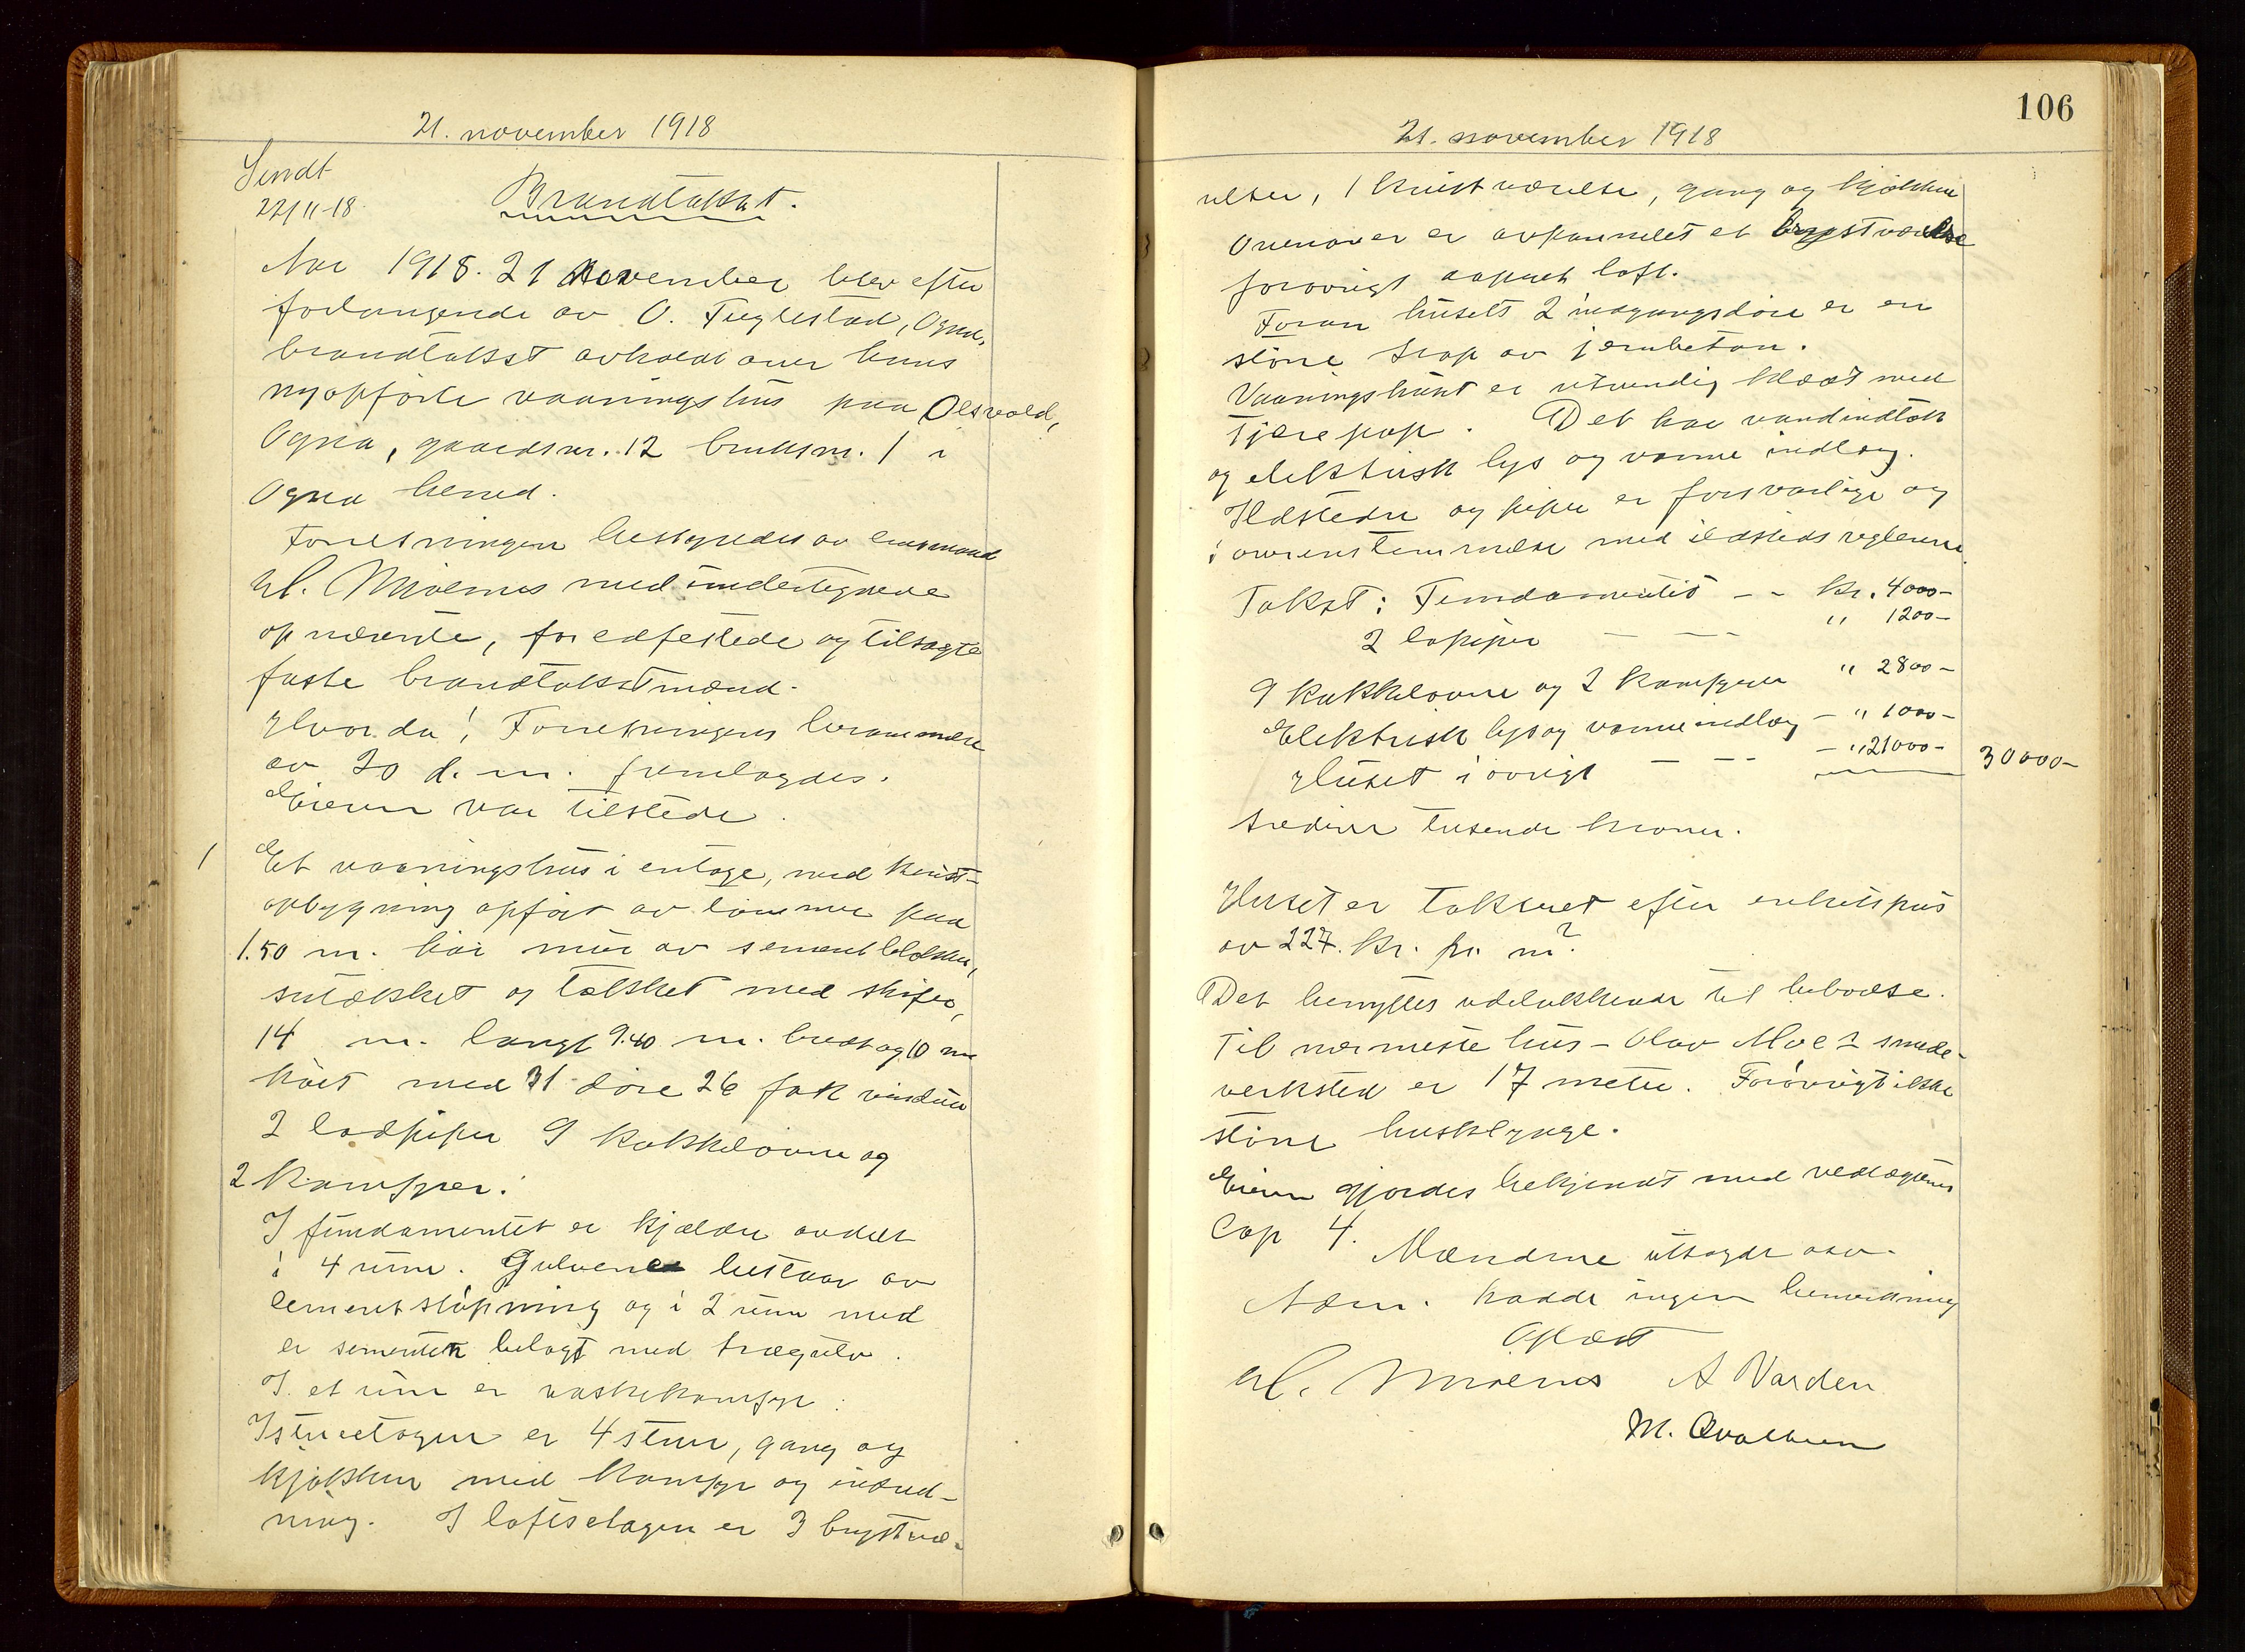 21. november 1918
Sendt
22/11-18.
Brandtakst.
Aar 1918. 21 november blev efter
forlangende av O. Fuglestad, Ogna,
brandtakst avholdt over hans
nyopförte vaaningshus paa Olsvold,
Ogna, gaardsnr. 12 bruksnr. 1 i
Ogna herred.
Forretningen bestyredes av lensmand
M. Mjølsnes med undertegnede
opnævnte, for edfestede og tilsagte
faste brandtakstmænd.
Hvorda! Forretningens berammelse
av 20 d. m. fremlagdes.
Eieren var tilstede.
1 Et vaaningshus i entage, med kvist-
opbygning opfört av tömmer paa
1.50 m. höi mur av sementblokker,
sutækket og tækket med skifer,
14 m. langt 9.40 m. bredt og 10 m
höit med 31 döre 26 fak vinduer
2 lodpiper 9 kakkelovne og
2 komfyrer.
I fundamentet er kjælder avdelt
i 4 rum. Gulvene bestaar av
sementstöpning og i 2 rum med
er sementen belagt med trægulv.
I et rum er vaskekomfyr.
I stueetagen er 4 stuer, gang og
kjökken med komfyr og indred-
ning. I loftsetagen er 3 brystvæ-
106
21. november 1918
relser, 1 kvistværelse, gang og kjökken
Ovenover er avpannelet et brystværelse
forövrigt aapnet loft.
Foran husets 2 indgangsdöre er en
större trap av jernbeton.
Vaaningshuset er utvendig klædt med
tjærepap. Det har vandindtak
og elektrisk lys og varme indlæg.
Ildsteder og piper er forsvarlige og
i overenstemmelse med ildstedsreglerne.
Takst: Fundamentet - - Kr. 4000-
2 lopiper - - - " 1200-
9 kakkelovne og 2 komfyrer " 2800-
Elektrisk lys og varmeindlæg - " 1000-
Huset i övrigt - - - - " 21000- 30000-
tredive tusende kroner.
Huset er taksert efter enhetspris
av 227. Kr. pr. m².
Det benyttes udelukkende til beboelse.
Til nærmeste hus - Olav Moes smede-
verksted er 17 meter. Forövrigt ikke
större husklynge.
Eieren gjordes bekjendt med vedtægternes
Cap 4.
Mændene utsagde osv.
Adm. hadde ingen bemerkning
Oplæst
M. Mjølsnes A Varden
M. Qvalbein